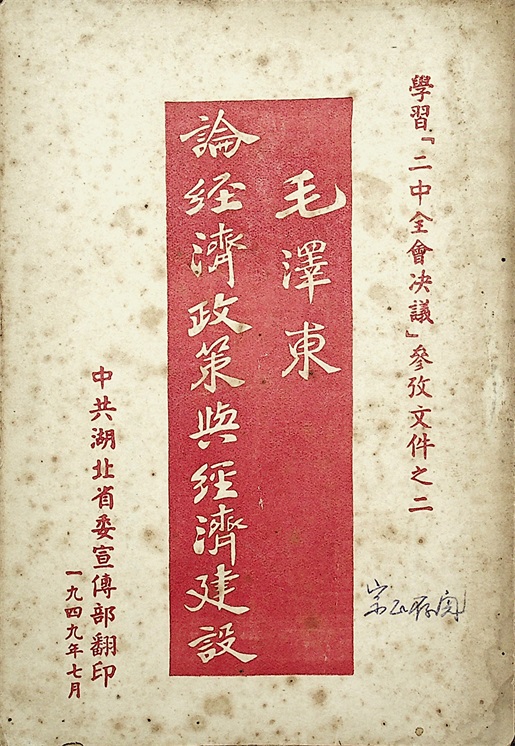 學習『二中全會決議』參攷文件之二
毛澤東
論經濟政策與經濟建設
中共湖北省委宣傳部翻印
一九四九年七月